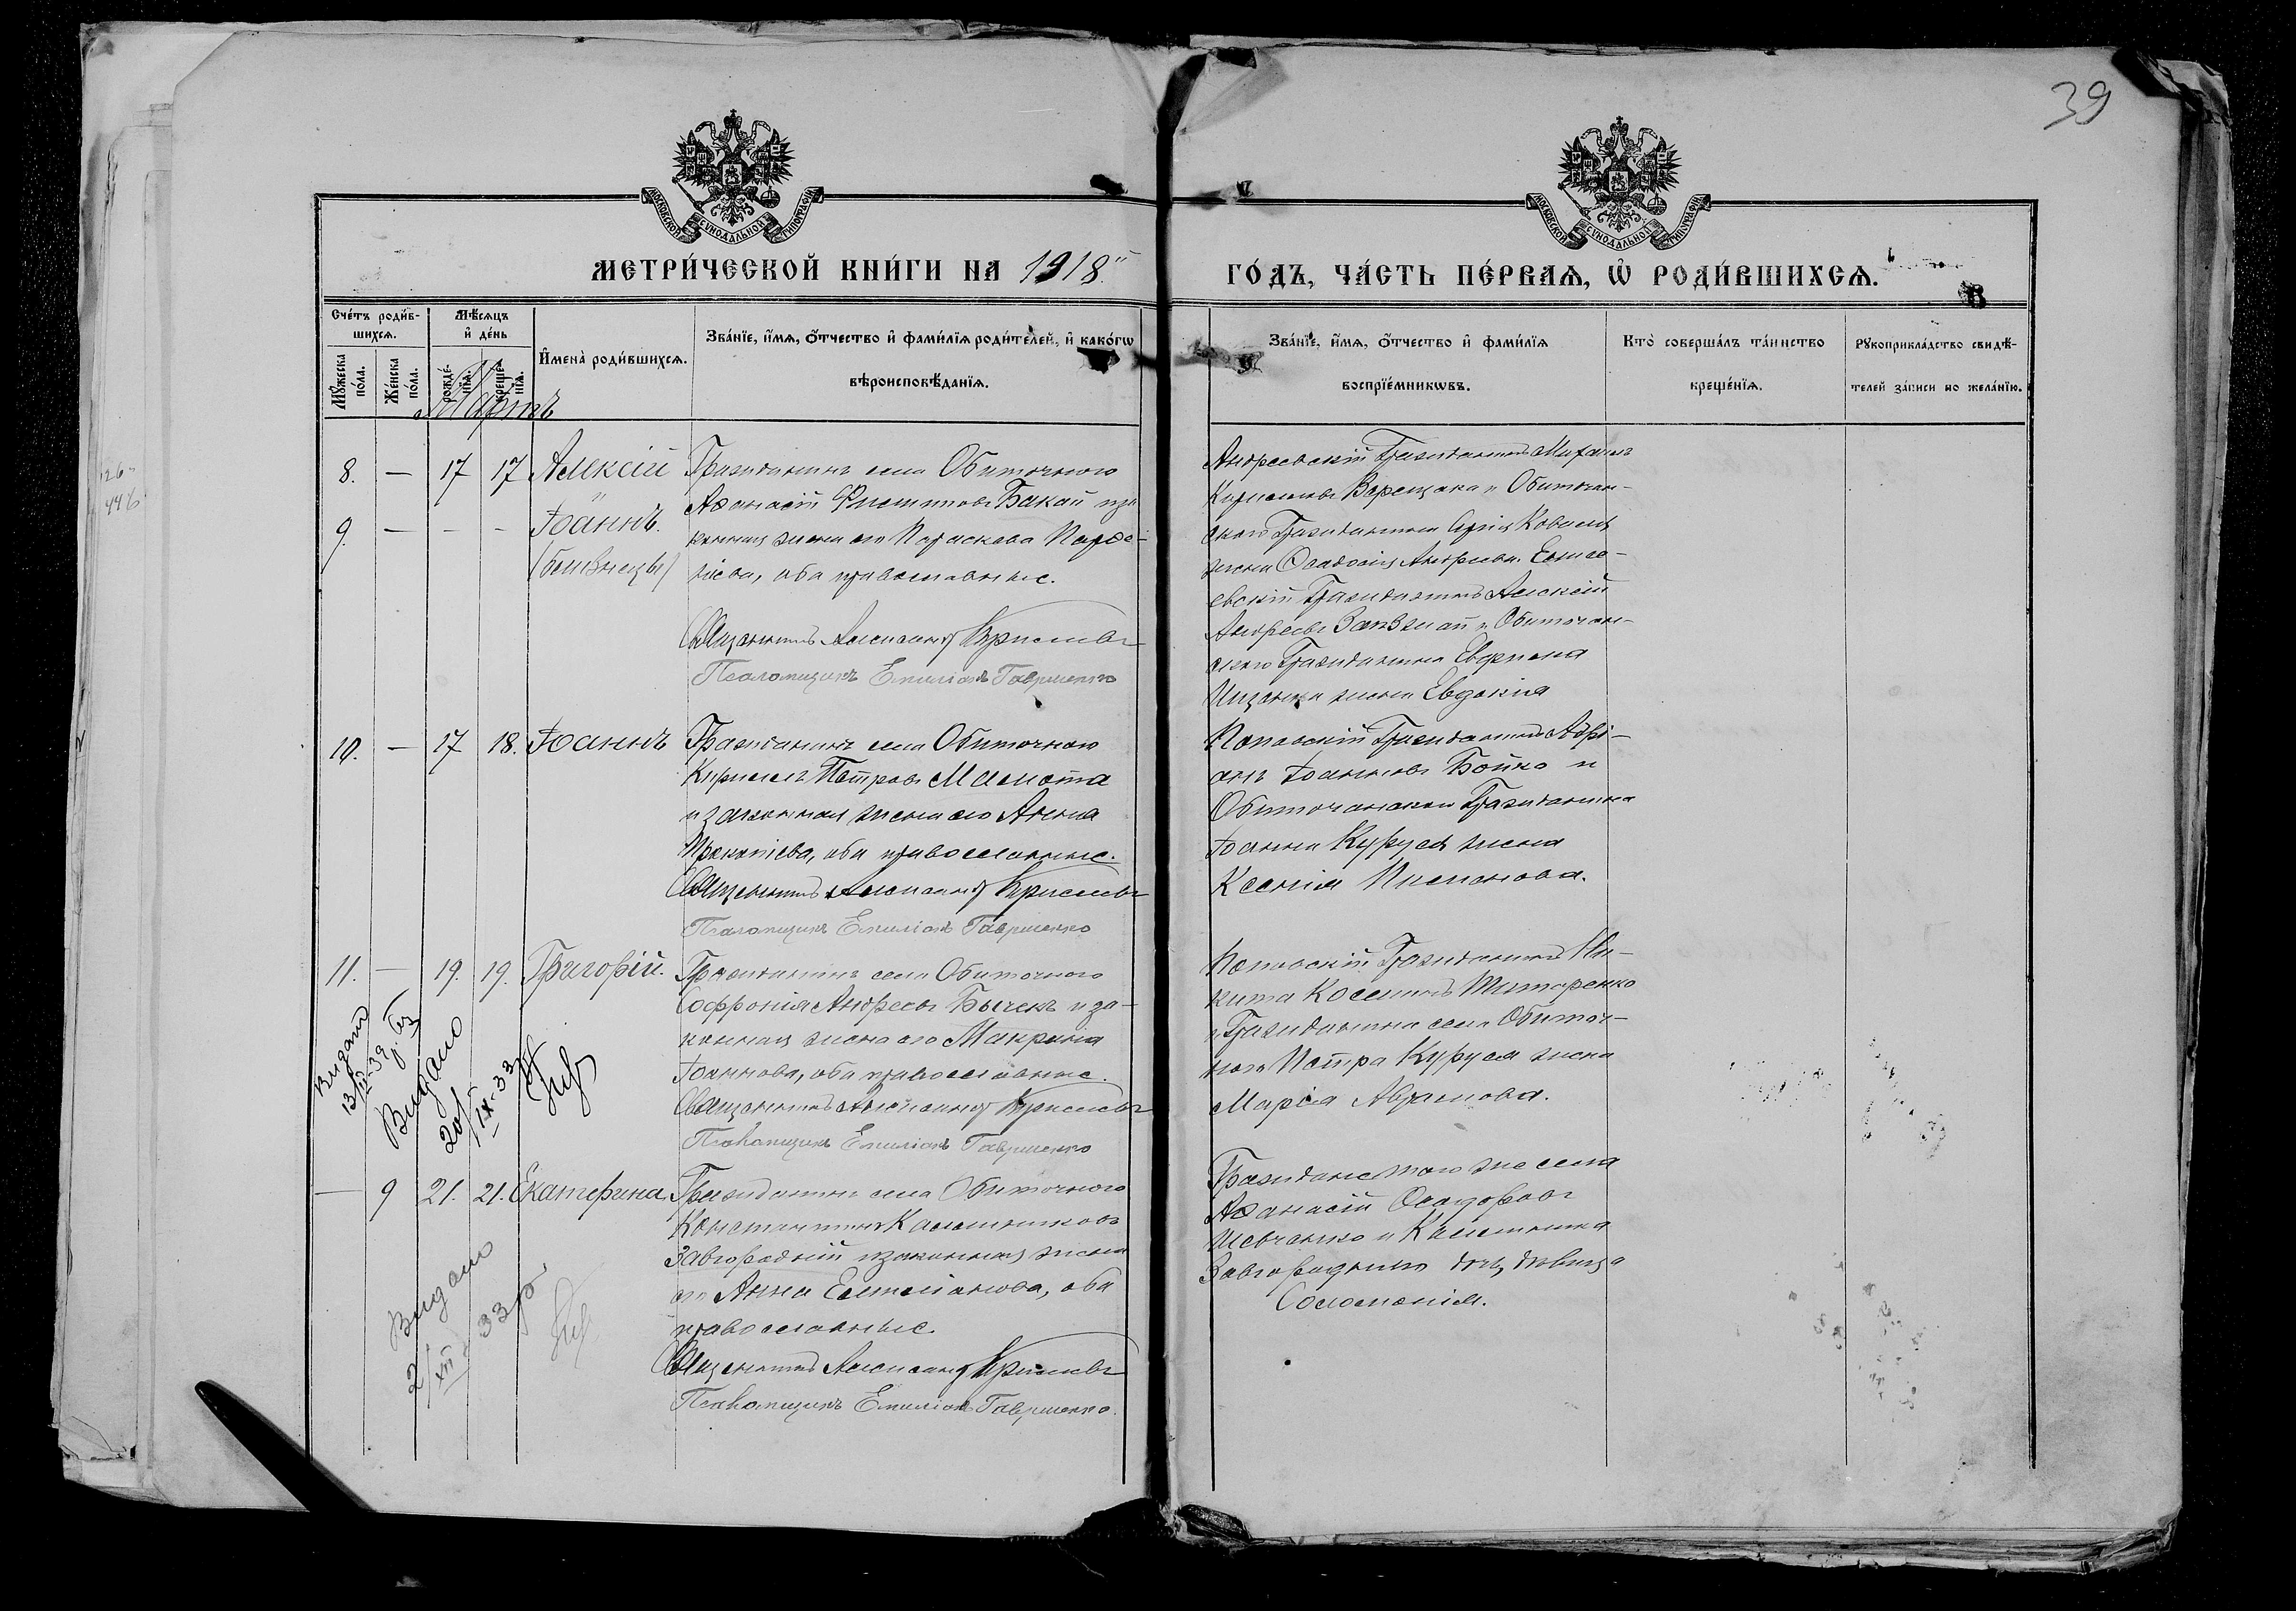 39
МОСКОВСКОЙ СѴНОДАЛЬНОЙ ТИПОГРАФІИ
МОСКОВСКОЙ СѴНОДАЛЬНОЙ ТИПОГРАФІИ
МЕТРИ́ЧЕСКОЙ КНИ́ГИ НА 1918
ГО́ДЪ, ЧА́СТЬ ПЕ́РВАЯ, Ѡ҆ РОДИ́ВШИХСЯ.
Сче́тъ роди́в-
шихся.
Мꙋ́жеска по́ла.
Же́нска по́ла.
Мѣ́сяцъ
и҆ де́нь
рожде́-нїя.
креще́-нїя.
И҆мена̀ роди́вшихся.
Зва́нїе, и҆́мя, ѻ҆́тчество и҆ фами́лїя роди́телей, и҆ како́гѡ
вѣроисповѣ́данїя.
Зва́нїе, и҆́мя, ѻ҆́тчество и҆ фами́лїя
воспрїе́мникѡвъ.
Кто̀ соверша́лъ та́инство
креще́нїя.
Рꙋкоприкла́дство свидѣ́-
телей за́писи по жела́нїю.
Мартъ
8. — 17 17 Алексій
9. — — — Іоаннъ.
(близнецы)
Гражданинъ села Обиточнаго
Афанасій Филипповъ Бакай и за
конная жена его Параскева
оба православные.
Священникъ Александръ Кириловъ
Псаломщикъ Емиліанъ Гавриленко
Андреевскій Гражданинъ Михаилъ
Кириловъ Верещака и Обиточан-
скаго Гражданина
жена Феодосія Андреева.
евскій Гражданинъ Алексій
Андреевъ и Обиточан-
скаго Гражданина
жена Евдокія
10. — 17 18. Іоаннъ
Гражданинъ села Обиточнаго
Кириллъ Петровъ Малюта
и законная жена его Анна
Прокопіева, оба православные.
Священникъ Александръ Кириловъ
Псаломщикъ Емиліанъ Гавриленко
Поповскій Гражданинъ Адрі-
анъ Іоанновъ Бойко и
Обиточанскаго Гражданина
Іоанна Куруся жена
Ксенія
11. — 19. 19. Григорій.
Гражданинъ села Обиточнаго
Софроній Андреевъ Бычекъ и за-
конная жена его Макрина
Іоаннова, оба православные.
Священникъ Александръ Кириловъ
Псаломщикъ Емиліанъ Гавриленко
Поповскій Гражданинъ Ни-
кита Косминъ Титаренко
и Гражданина села Обиточ-
наго Петра Куруся жена
Марія Аврамова.
Видано
13/
Видано
20/IX-33 р
— 9 21. 21. Екатерина
Гражданинъ села Обиточнаго
Константинъ Каллиниковъ
Завгородній и законная жена
его Анна Емеліанова, оба
православные.
Священникъ Александръ Кириловъ
Псаломщикъ Емиліанъ Гавриленко.
Граждане того же села
Афанасій Феодоровъ
Шевченко и Каллиника
Завгородняго дочь дѣвица
Соломонія.
Видано
2/XII 33 р